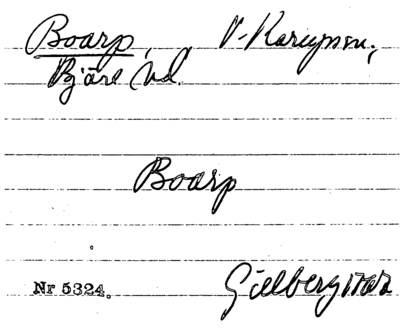 Boarp, V. Karupsn.,
Bjäre hd.
Boarp
Nr 5324. Gillberg 1767